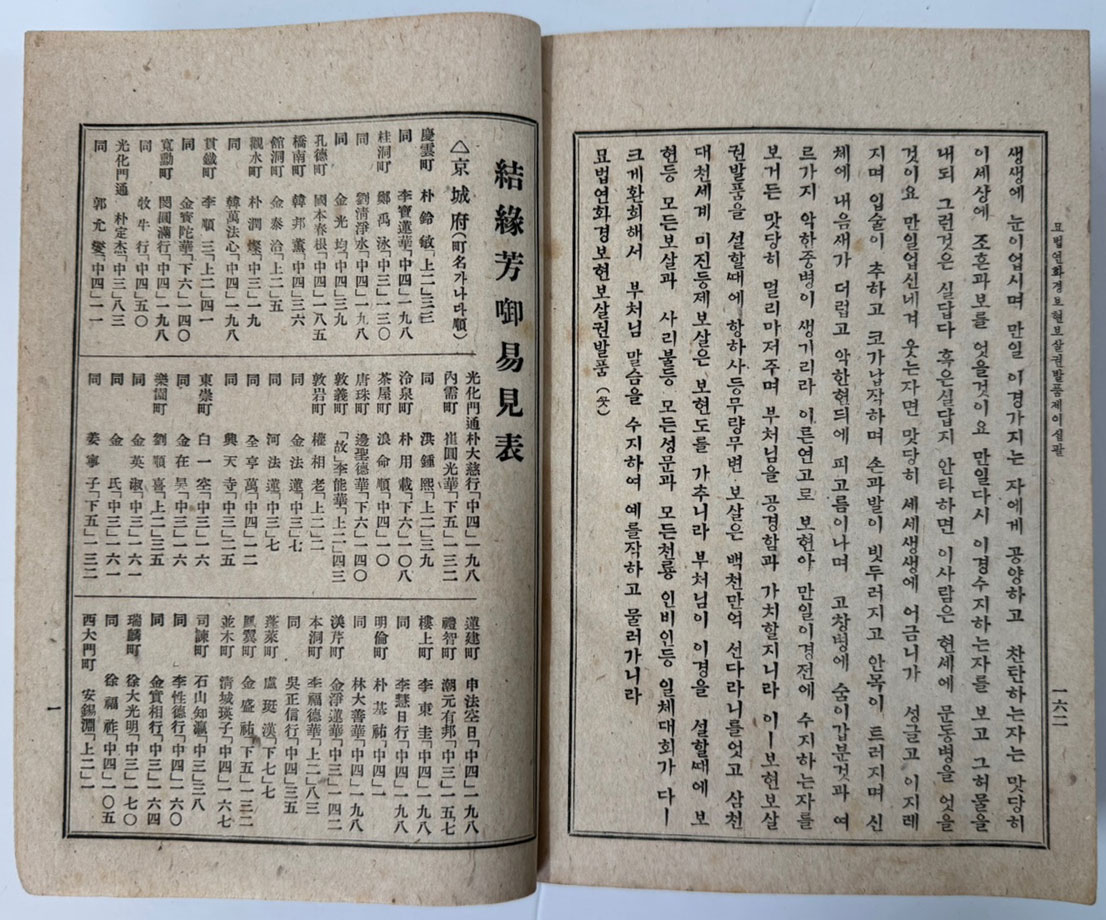 묘법연화경보현보살권발품제이십팔
一六二
생생에 눈이업시며 만일 이경가지는 자에게 공양하고 찬탄하는자는 맛당히
이세상에 조흔과보를 엇을것이요 만일다시 이경수지하는자를 보고 그허물을
내되 그런것은 실답다 혹은실답지 안타하면 이사람은 현세에 문동병을 엇을
것이요 만일업신네겨 웃는자면 맛당히 세세생생에 어금니가 성글고 이지레
지며 입술이 추하고 코가납작하며 손과발이 빗두러지고 안목이 트러지며 신
체에 내음새가 더럽고 악한현듸에 피고름이나며 고창병에 숨이갑분것과 여
르가지 악한중병이 생기리라 이른연고로 보현아 만일이경전에 수지하는자를
보거든 맛당히 멀리마저주며 부처님을 공경함과 가치할지니라 이ㅡ보현보살
권발품을 설할때에 항하사등무량무변 보살은 백천만억 선다라니를엇고 삼천
대천세계 미진등제보살은 보현도를 가추니라 부처님이 이경을 설할때에 보
현등 모든보살과 사리불등 모든성문과 모든천룡 인비인등 일체대회가 다ㅡ
크게환희해서 부처님 말슴을 수지하여 예를작하고 물러가니라
묘법연화경보현보살권발품 (終)
結緣芳啣易見表
△京城府(町名가나다順)
慶雲町 朴鈴敏「上二」三三
同 李寶蓮華「中四」一九八
桂洞町 鄭禹泳「中三」一三〇
同 劉淸淨水「中四」一九八
同 金光均「中四」三九
孔德町 國本春根「中四」一八五
橋南町 韓邦薰「中四」三六
館洞町 金泰洽「上二」五
觀水町 朴潤燦「中四」一九
同 韓萬法心「中四」一九八
貫鐵町 李順三「上二」四
同 金寶陀華「下六」一四〇
寬勳町 閔圓滿行「中四」一九八
同 牧牛行「中四」五〇
光化門通 朴定杰「中三」八三
同 郭允燮「中四」一一
光化門通 朴大慈行「中四」一九八
內需町 崔圓光華「下五」一三二
同 洪鍾熙「上二」三九
冷泉町 朴用載「下六」一〇八
茶屋町 浪命順「中四」一〇
唐珠町 邊聖德華「下六」一四〇
敦義町 「故」李能華「上二」四三
敦岩町 權相老「上二」二
同 金法蓮「中三」七
同 河法蓮「中三」七
同 全亨萬「中四」二二
同 興天寺「中三」二五
東崇町 白一空「中三」一六
同 金在昊「中三」一六
樂園町 劉順喜「上二」三五
同 金英淑「中三」一六一
同 金氏「中三」一六一
同 姜寧子「下五」一三二
蓮建町 申法空日「中四」一九八
禮智町 潮元有邦「中三」一五七
樓上町 李東圭「中四」一九八
同 李慧日行「中四」一九八
明倫町 朴基祐「中四」一
同 林大善華「中四」一九八
渼芹町 金淨蓮華「中三」一四二
本洞町 李福德華「上二」八三
同 吳正信行「中四」三五
蓬萊町 盧斑漢「下七」七
鳳翼町 金盛祐「下五」一三二
並木町 淸城瑛子「中四」一六七
司諫町 石山知瀛「中三」三八
同 李性德行「中四」一六〇
同 金實相行「中三」一六四
瑞麟町 徐大光明「中三」一七〇
同 徐福祚「中四」一〇五
西大門町 安錫淵「上二」一
一